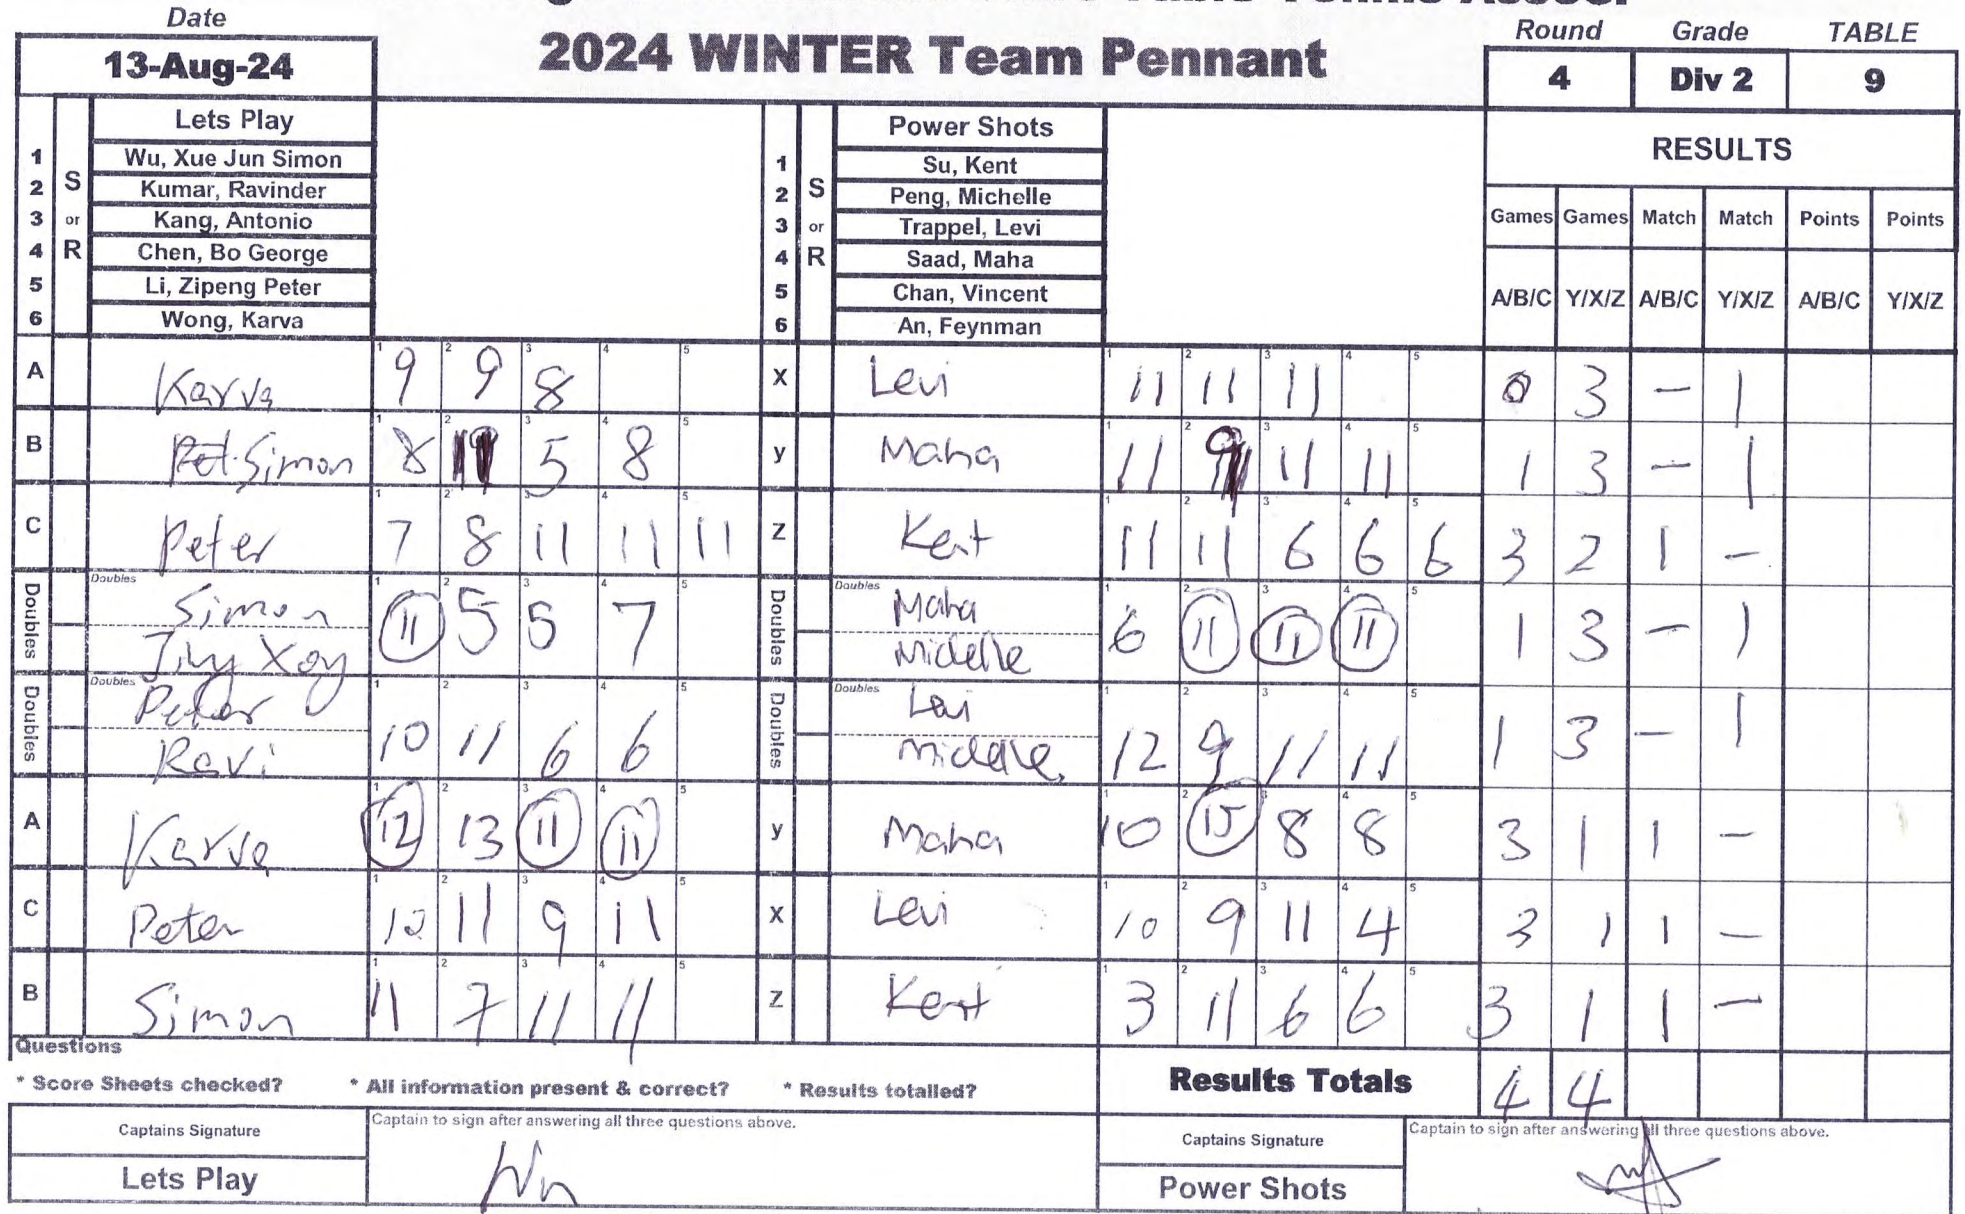 Date
13-Aug-24
2024 WINTER Team Pennant
Round Grade TABLE
4 Div 2 9
Lets Play
Power Shots
RESULTS
1 Wu, Xue Jun Simon
2 Kumar, Ravinder
3 Kang, Antonio
4 Chen, Bo George
5 Li, Zipeng Peter
6 Wong, Karva
S or R
1 Su, Kent
2 Peng, Michelle
3 Trappel, Levi
4 Saad, Maha
5 Chan, Vincent
6 An, Feynman
S or R
Games Games Match Match Points Points
A/B/C Y/X/Z A/B/C Y/X/Z A/B/C Y/X/Z
A Karva 9 9 8 X Levi 11 11 11 0 3 – 1
B Simon 8 11 5 8 y Maha 11 9 11 11 1 3 – 1
C Peter 7 8 11 11 11 Z Kent 11 11 6 6 6 3 2 1 –
Doubles Simon 11 5 5 7 Doubles Maha 6 11 11 11 1 3 – 1
Doubles Peter Ravi 10 11 6 6 Doubles 12 9 11 11 1 3 – 1
A Karva 12 13 11 11 y Maha 10 15 8 8 3 1 1 –
C Peter 11 9 11 X Levi 10 9 11 4 3 1 1 –
B Simon 11 7 11 11 Z Kent 3 11 6 6 3 1 1 –
Questions
* Score Sheets checked? * All information present & correct? * Results totalled?
Results Totals 4 4
Captains Signature
Captain to sign after answering all three questions above.
Lets Play
Captains Signature
Captain to sign after answering all three questions above.
Power Shots